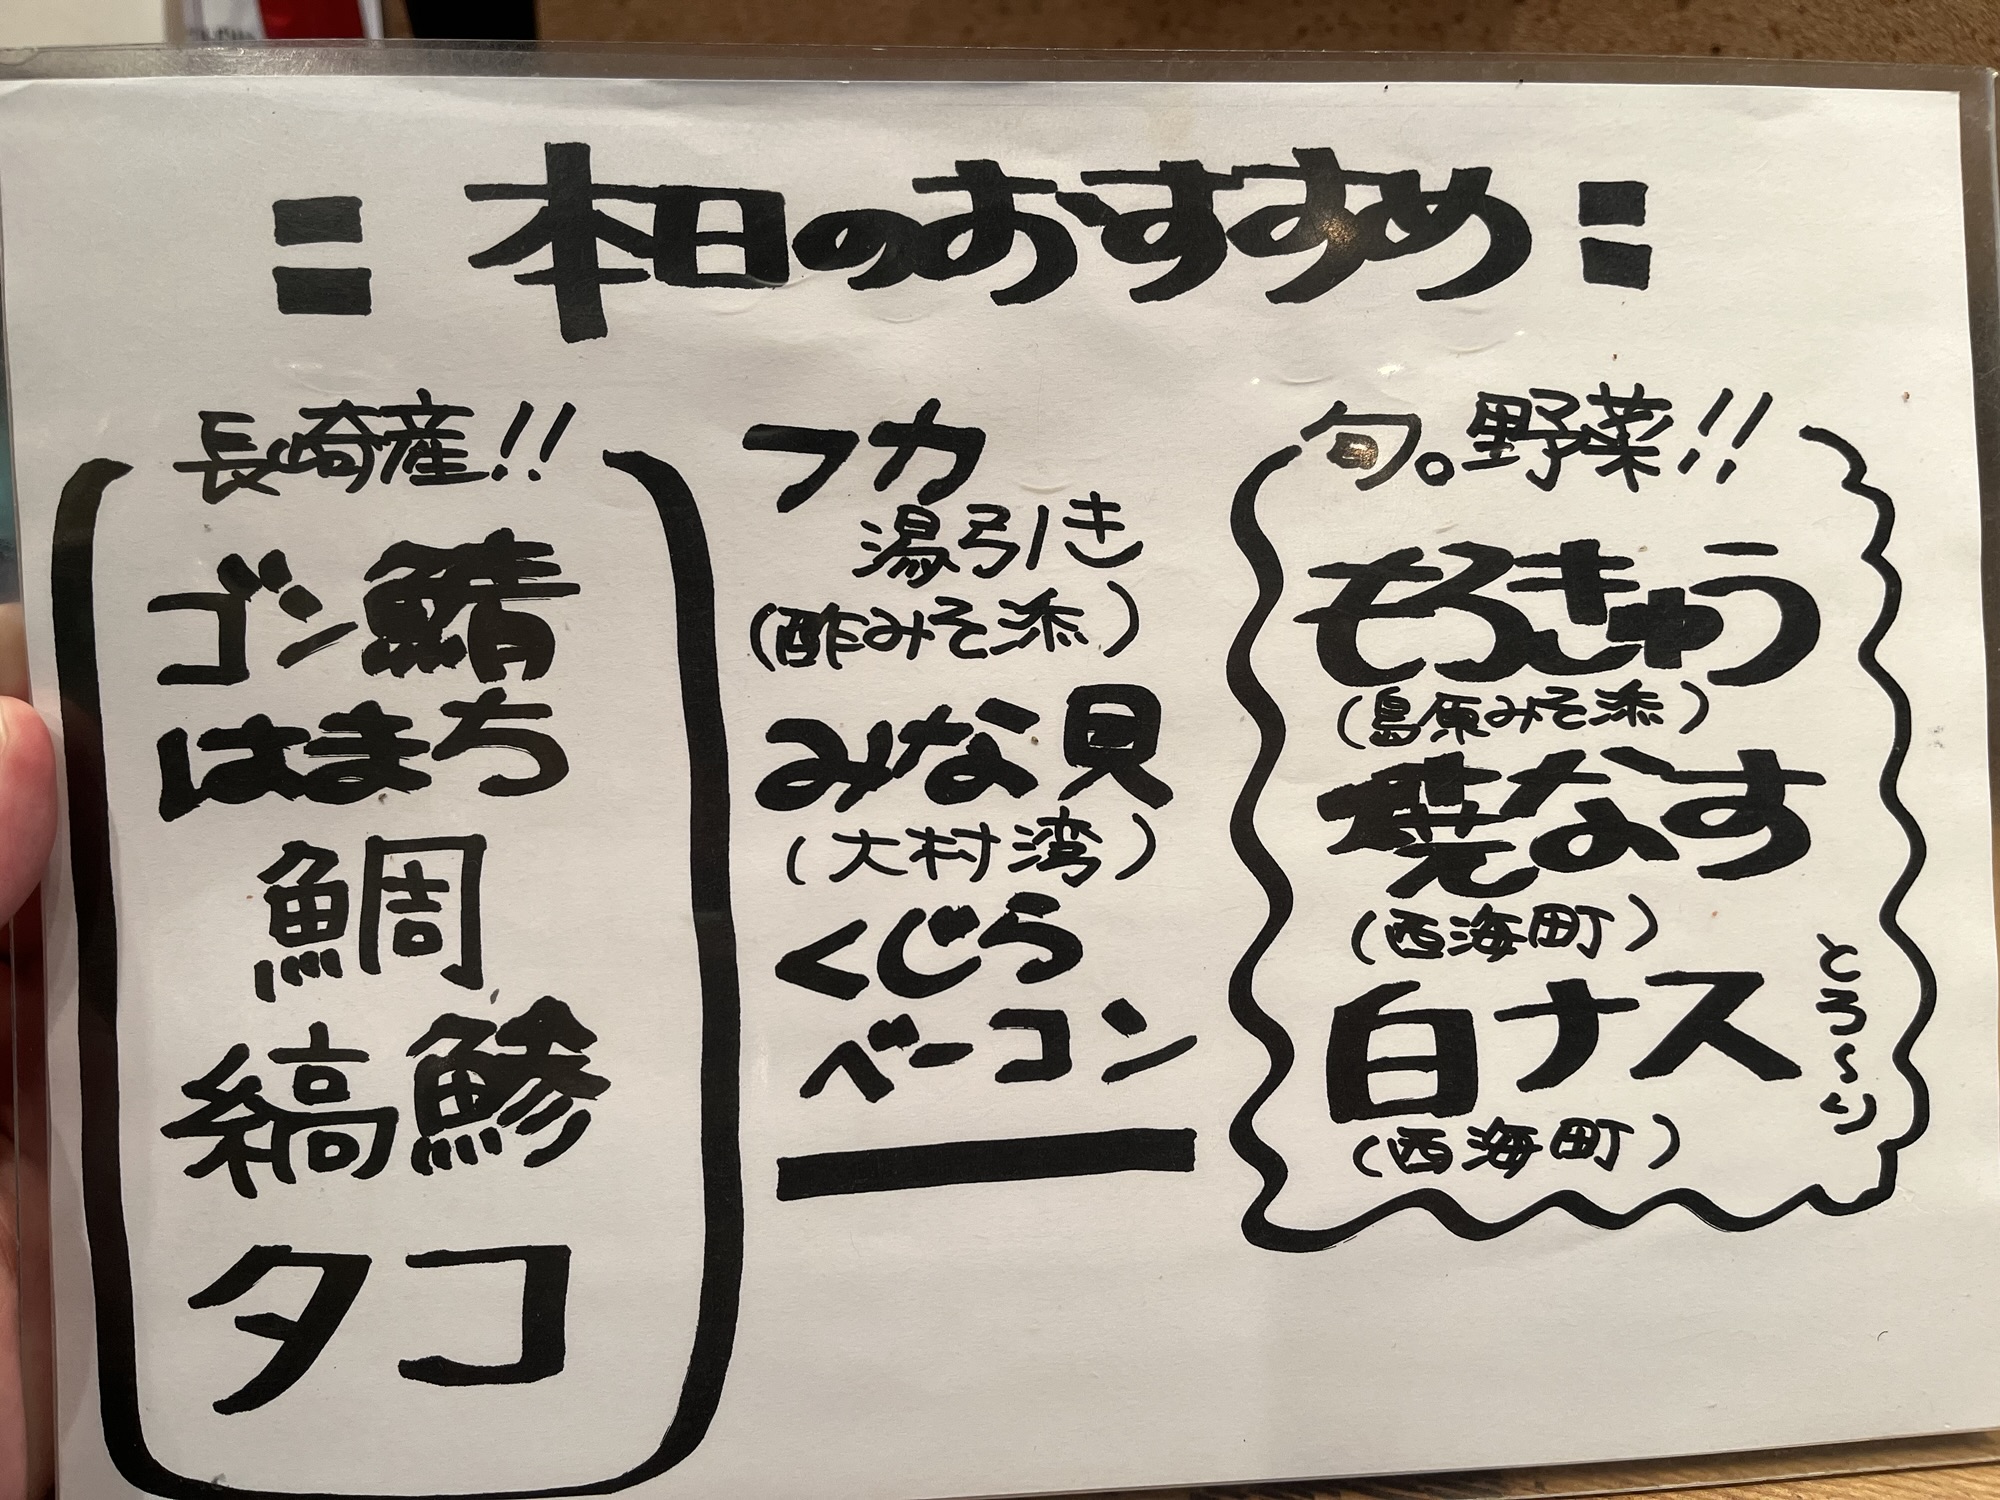 = 本日のおすすめ =
長崎産!!
ゴン鯖
はまち
鯛
縞鯵
タコ
フカ
湯引き
(酢みそ添)
みな貝
(大村湾)
くじら
ベーコン
旬。野菜!!
もろきゅう
(島原みそ添)
焼なす
(西海町)
白ナス
とろ~り
(西海町)